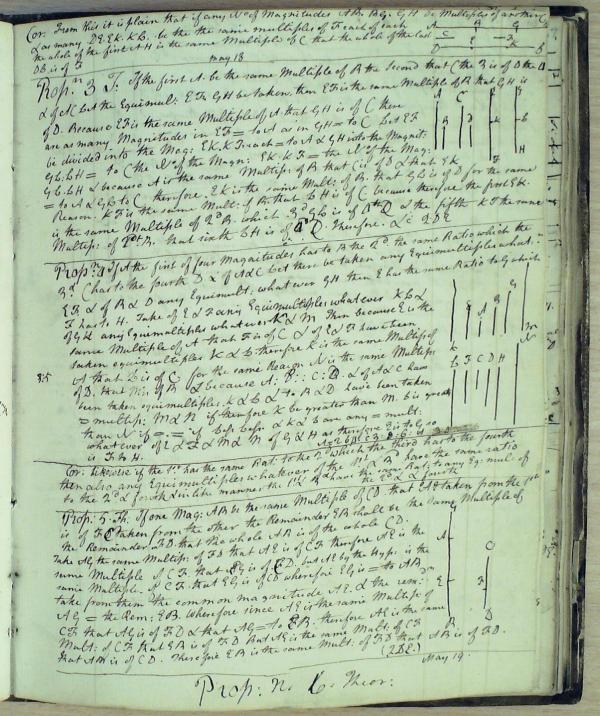 Cor: From this it is plain that if any No of Magnitudes AB, BG, GH be Multiples of another C
& as many DE, EK, KL. be the same multiples of F each of each
the whole of the first AH is the same Multiple of C that the whole of the last
DL is of F
may 18
Prop. 3 T: If the first A be the same Multiple of B the Second that C the 3 is of D the 4
& of A & C let the Equimul: EF, GH be taken, then EF is the same Multiple of B that GH is
of D. Because EF is the same Multiple of A that GH is of C there
are as many Magnitudes in EF = to A as in GH = to C let EF
be divided into the Mag: EK, KF each = to A & GH into the Magnit:
GL, LH = to C the No of the Magn: EK, KF = the No of the Mag:
GL, LH & because A is the same Multip: of B that C is of D & that EK
= to A & GL to C therefore EK is the same Mult: of B that GL is of D for the same
Reason KF is the same Mult: of B that LH is of C because therefore the first EK
is the same Multiple of 2d B which 3d GL is of 4th D & the fifth KF the same
Multip: of 2d B that sixth LH is of 4th D. Therefore &c QED
Prop: 4 If the first of four Magnitudes has to B the 2d the same Ratio which the
3d C has to the fourth D & of A & C let there be taken any Equimultiples what:
E, F & of B & D any Equimult: what ever GH then E has the same Ratio to G which
F has to H. Take of E & F any Equimultiples what ever K & L &
of G H any Equimultiples what ever M & N Then because E is the
same Multiple of A that F is of C & of E & F have been
taken equimultiples K & L therefore K is the same Multip of
A that L is of C for the same Reason N is the same Multiple
of D that M is of B & because A: B:: C: D & of A & C have
been taken equimultiples K & L & to B & D have been taken
= multip: M & N if therefore K be greater than M. L is great:
than N if = = if less less & K & L are any = mult:
what ever of E & F & M & N of G & H as therefore E is to G so
is F to H.
Cor: likewise if the 1st has the same Rat: to the 2d which the third has to the fourth
then also any Equimultiples whatever of the 1st & 3d have the same ratio
to the 2d & fourth & in like manner the 1st & 3d have the same Rat: to any Eq: mul: of
the 2d & fourth
Prop: 5. Th. If one Mag: AB be the same Multiple of CD that AE taken from the 1st
is of CF taken from the other the Remainder EB shall be the same Multiple of
the Remainder FD that the whole AB is of the whole CD:
Take AG the same Multip: of FD that AE is of CF therefore AE is the
same Multiple of CF that EG is of CD. but AE by the Hyp: is the
same Multiple of CF that AB is of CD wherefore EG is = to AB
take from them the common magnitude AE & the rem:
AG = the Rem: EB. Wherefore since AE is the same Multip: of
CF that AG is of FD & that AG = to EB. therefore AE is the same
Mult: of CF that EB is of FD But AE is the same Mult: of CF
that AB is of CD. Therefore EB is the same Mult: of FD that AB is of CD.
(QED)
May 19.
Prop: N. 6. Theor: